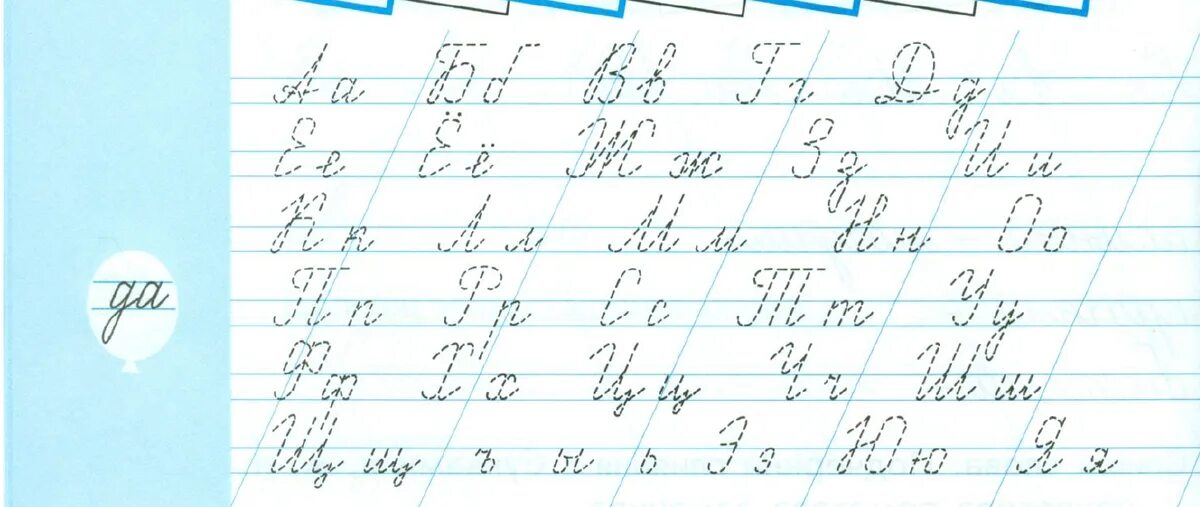 Аа Бб Вв Гг Дд
Ее Ёё Жж Зз Ии
Кк Лл Мм Нн Оо
да
Пп Рр Сс Тт Уу
Фф Хх Цц Чч Шш
Щщ ъ ы ь Ээ Юю Яя